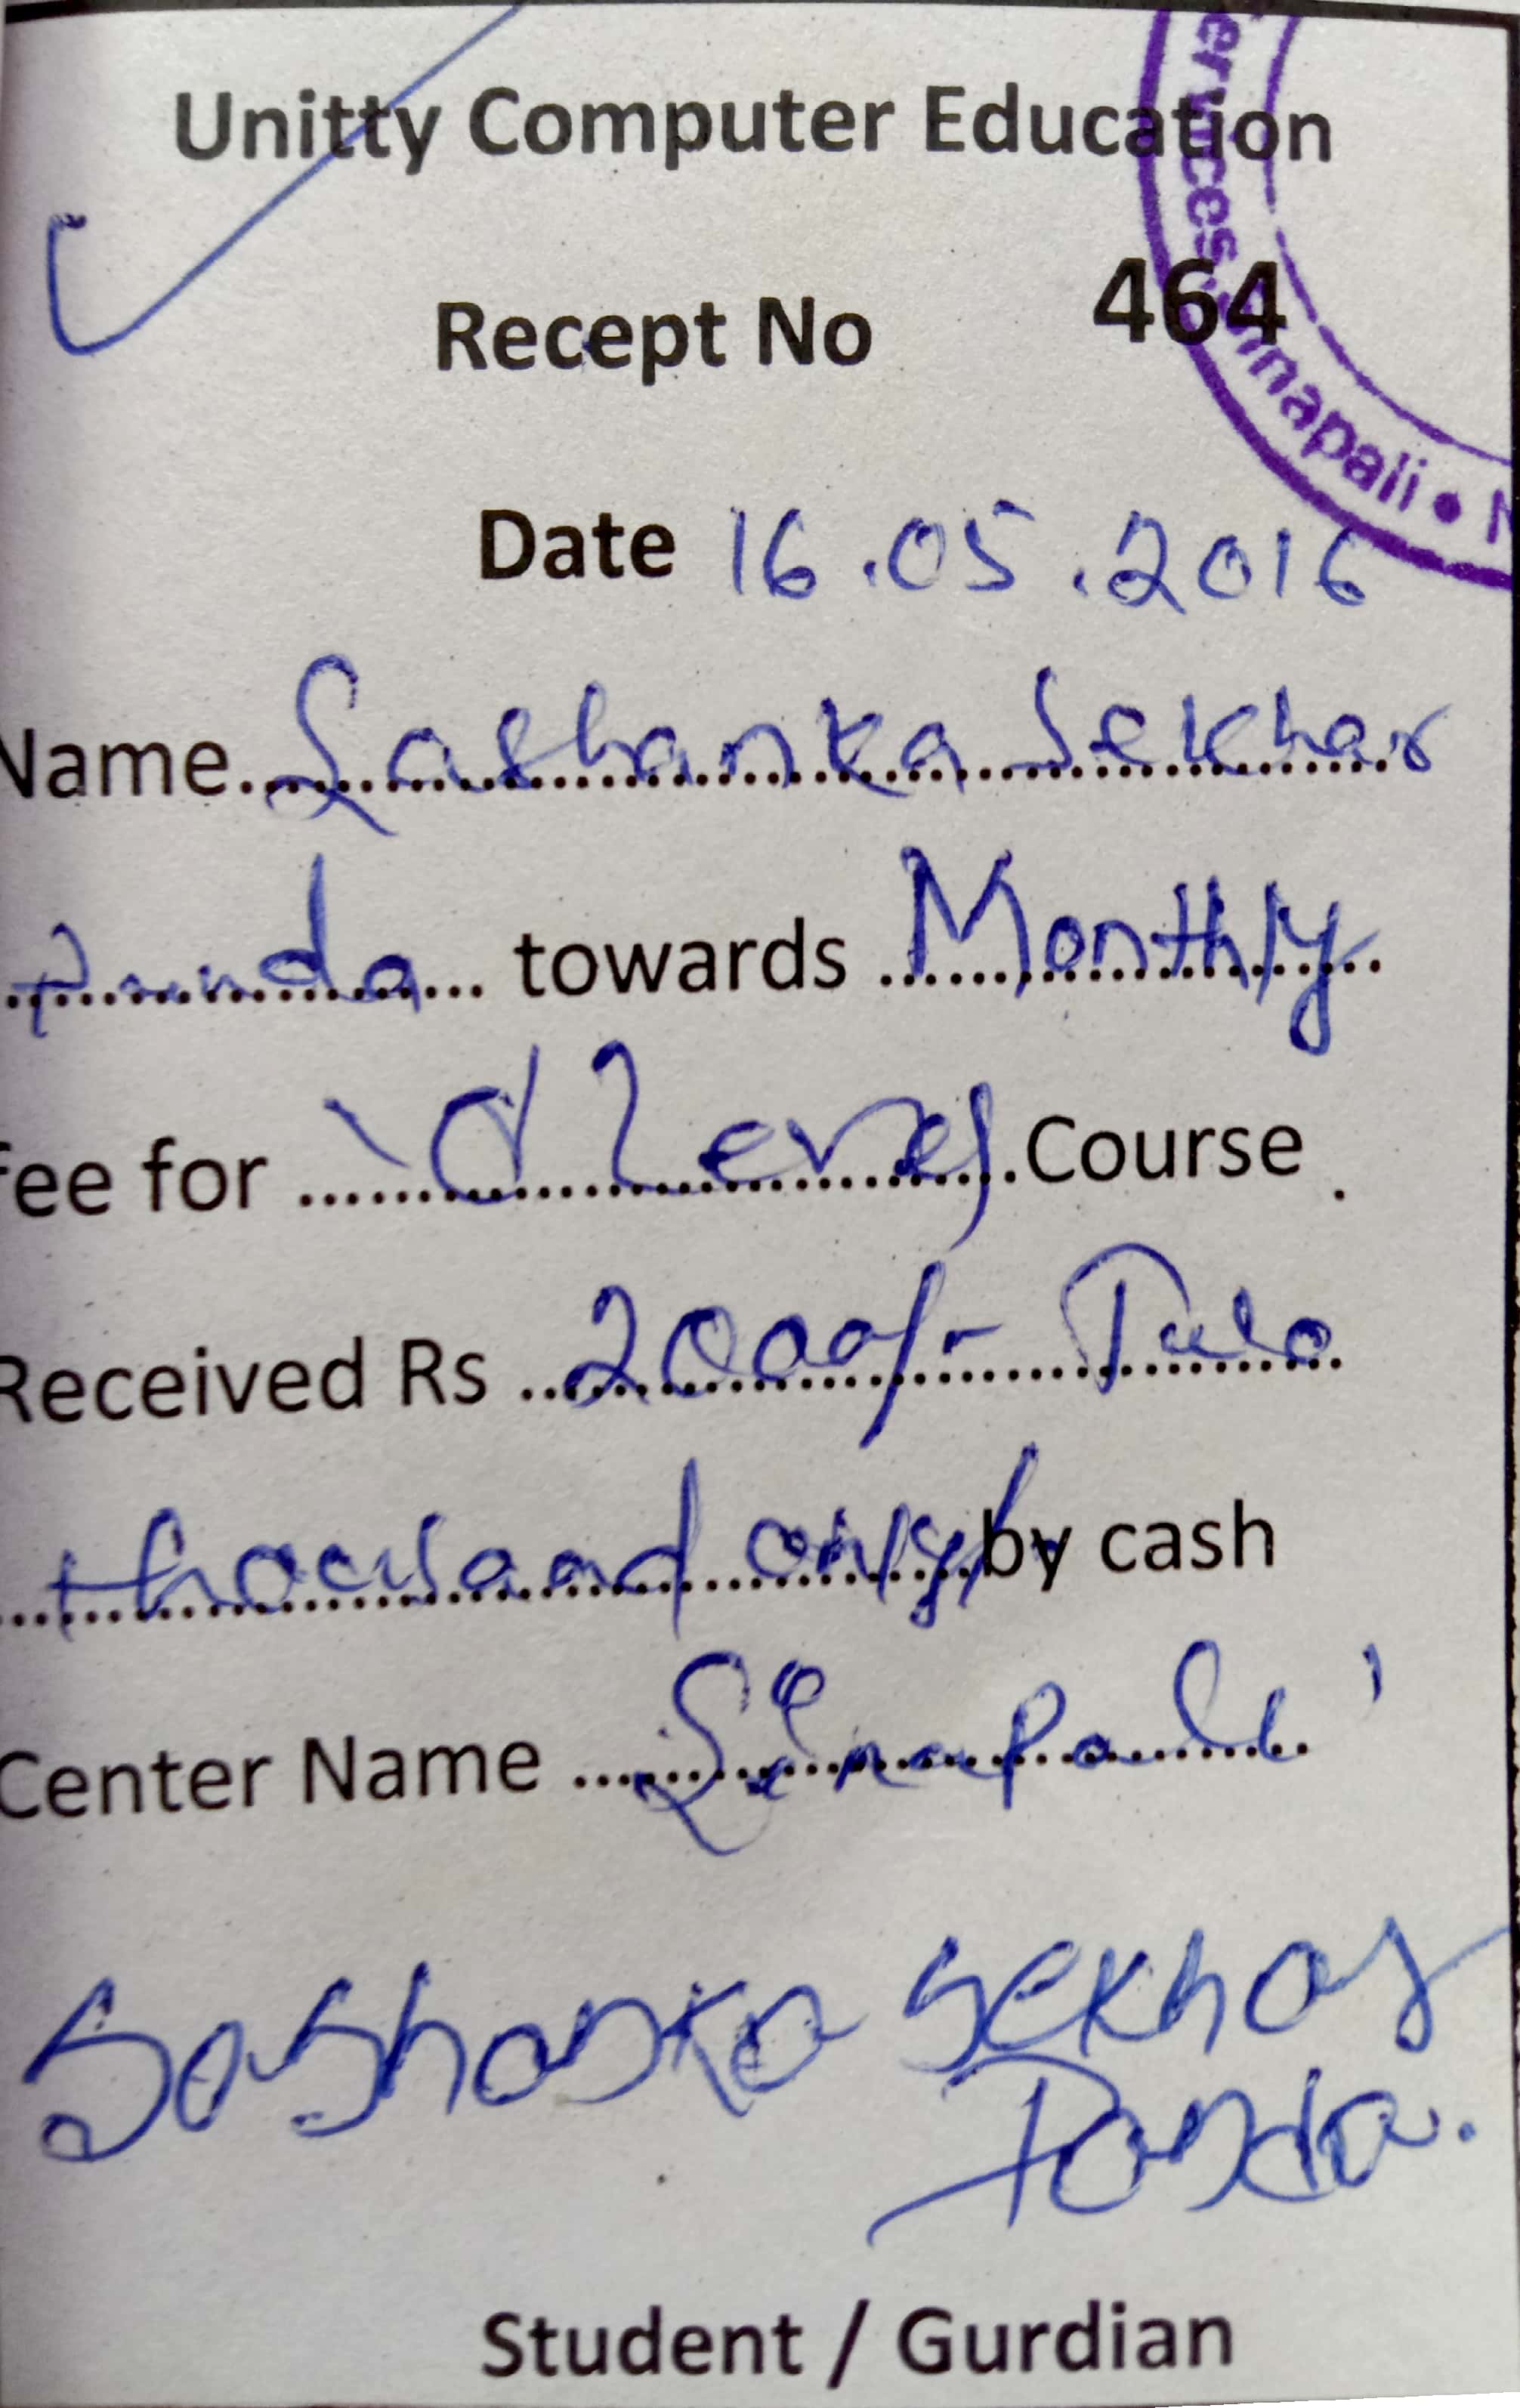 Unitty Computer Education
Recept No 464
Date 16.05.2016
Name Sashanka Sekhar
Panda towards Monthly
fee for 'O' Level Course
Received Rs 2000/- Two
thousand only/- by cash
Center Name Sinapali
Sashanka Sekhar
Panda.
Student / Gurdian
ervices
napali •